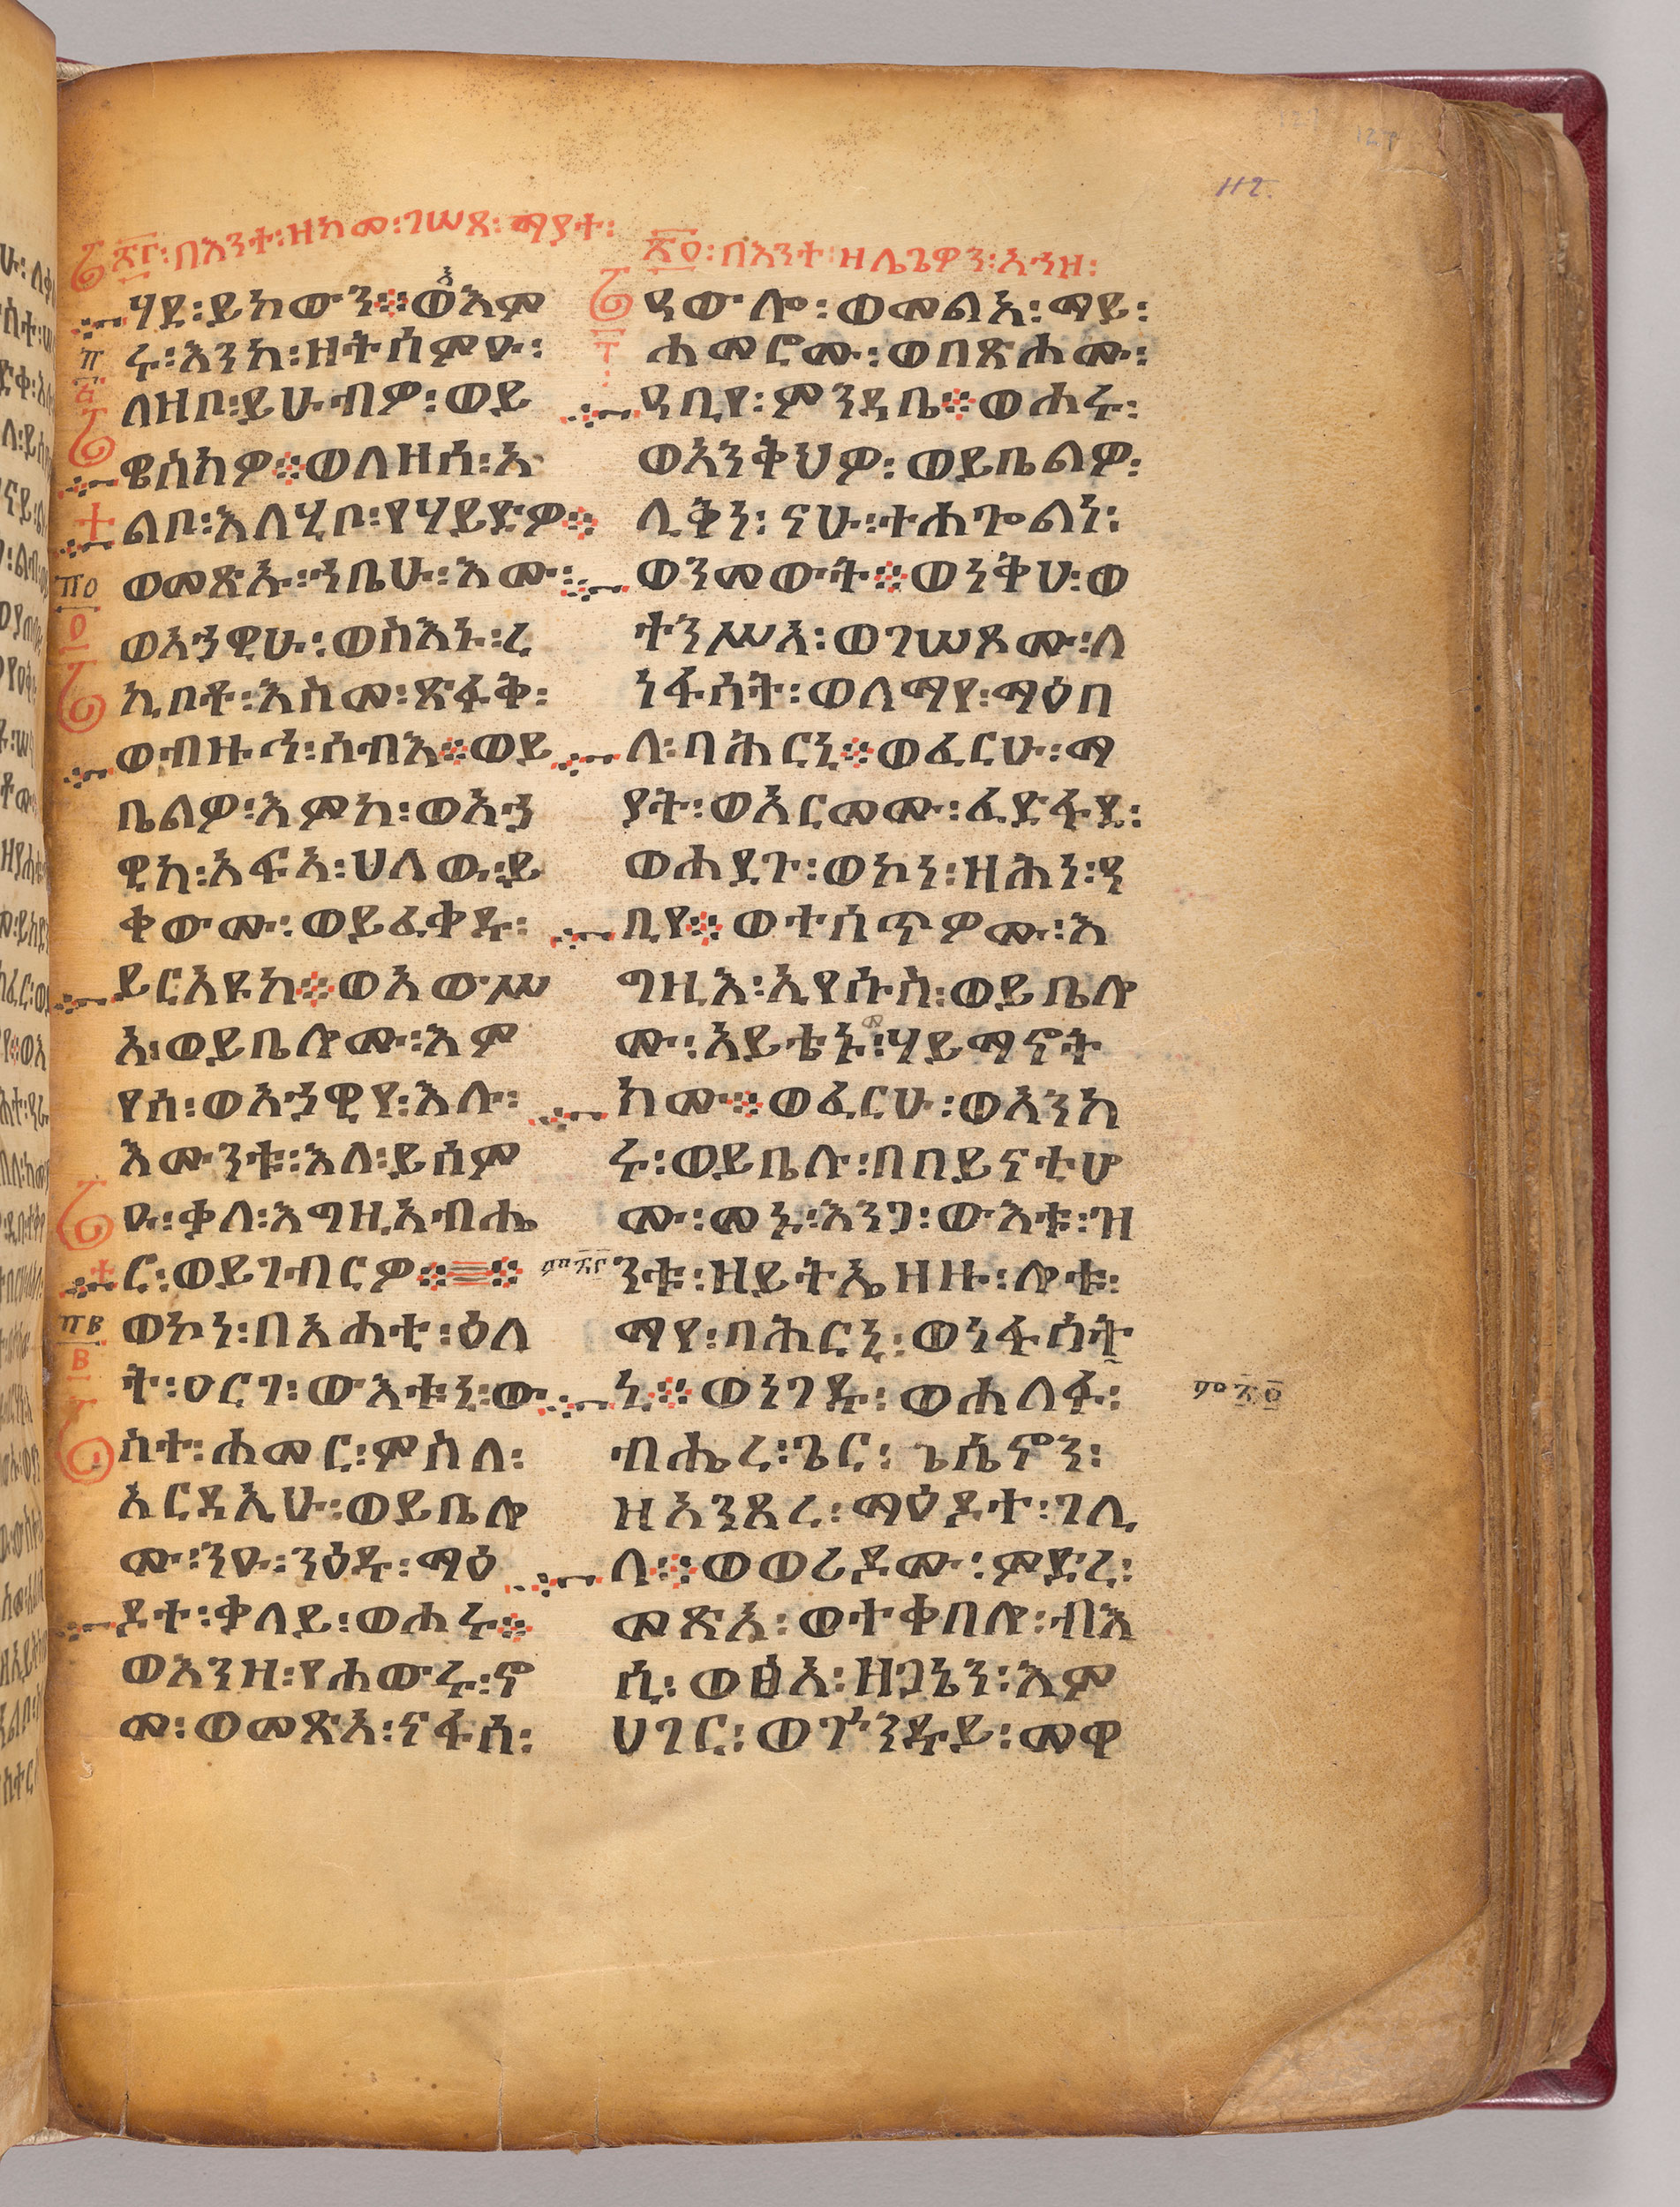 ፳፫፡ በእንተ፡ ዘከመ፡ ገሠጸ፡ ማያተ፡
ሃደ፡ ይከውን፨ ወአእም
ሩ፡ እንከ፡ ዘትሰምዑ፡
ለዘቦ፡ ይሁብዎ፡ ወይ
ዌስክዎ፨ ወለዘሰ፡ አ
ልቦ፡ እለሂቦ፡ የሃይድዎ፨
ወመጽኡ፡ ኀቤሁ፡ እሙ፡
ወአኃዊሁ፡ ወስእኑ፡ ረ
ኪቦቶ፡ እስመ፡ ጽፋቅ፡
ወብዙኅ፡ ሰብእ፨ ወይ
ቤልዎ፡ እምከ፡ ወአኃ
ዊከ፡ አፍአ፡ ህለዉ፡ ይ
ቀውሙ፡ ወይፈቀዱ፡
ይርአዩከ፨ ወአውሥ
አ፡ ወይቤሎሙ፡ እም
የሰ፡ ወአኃዊየ፡ እሉ፡
እሙንቱ፡ እለ፡ ይሰም
ዑ፡ ቃለ፡ እግዚአብሔ
ር፡ ወይገብርዎ፨
ወኮነ፡ በአሐቲ፡ ዕለ
ት፡ ዐርገ፡ ውእቱኒ፡ ው
ስተ፡ ሐመር፡ ምስለ፡
አርዳኢሁ፡ ወይቤሎ
ሙ፡ ንዑ፡ ንዕዱ፡ ማዕ
ዶተ፡ ቀላይ፡ ወሐሩ፨
ወእንዘ፡ የሐውሩ፡ ኖ
መ፡ ወመጽአ፡ ናፋሰ፡
፳፬፡ በእንተ፡ ዘሌጌዎን፡ አኀዘ፡
ዓውሎ፡ ወመልአ፡ ማይ፡
ሐመሮሙ፡ ወበጽሐሙ፡
ዓቢየ፡ ምንዳቤ፨ ወሐሩ፡
ወአንቅህዎ፡ ወይቤልዎ፡
ሊቅነ፡ ናሁ፡ ተሐጐልነ፡
ወንመውት፨ ወነቅሀ፡ ወ
ተንሥአ፡ ወገሠጾሙ፡ ለ
ነፋሳት፡ ወለማየ፡ ማዕበ
ለ፡ ባሕርኒ፨ ወፈርሁ፡ ማ
ያት፡ ወአርመሙ፡ ፈድፋደ፡
ወሐደጉ፡ ወኮነ፡ ዘሕነ፡ ዓ
ቢየ፨ ወተሰጥዎሙ፡ እ
ግዚእ፡ ኢየሱስ፡ ወይቤሎ
ሙ፡ አይቴኑ፡ ሃይማኖት
ክሙ፨ ወፈርሁ፡ ወአንከ
ሩ፡ ወይቤሉ፡ በበይናቲሆ
ሙ፡ መኑ፡ እንጋ፡ ውእቱ፡ ዝ
ንቱ፡ ዘይትኤዘዙ፡ ሎቱ፡
ማየ፡ ባሕርኒ፡ ወነፋሳት
ኒ፨ ወነገዱ፡ ወሐለፉ፡
ብሔረ፡ ጌር፡ ጌሴኖን፡
ዘአንጸረ፡ ማዕዶተ፡ ገሊ
ላ፨ ወወሪዶሙ፡ ምድረ፡
መጽአ፡ ወተቀበሎ፡ ብእ
ሲ፡ ወፅአ፡ ዘጋኔን፡ እም
ሀገር፡ ወጕንዱይ፡ መዋ
112